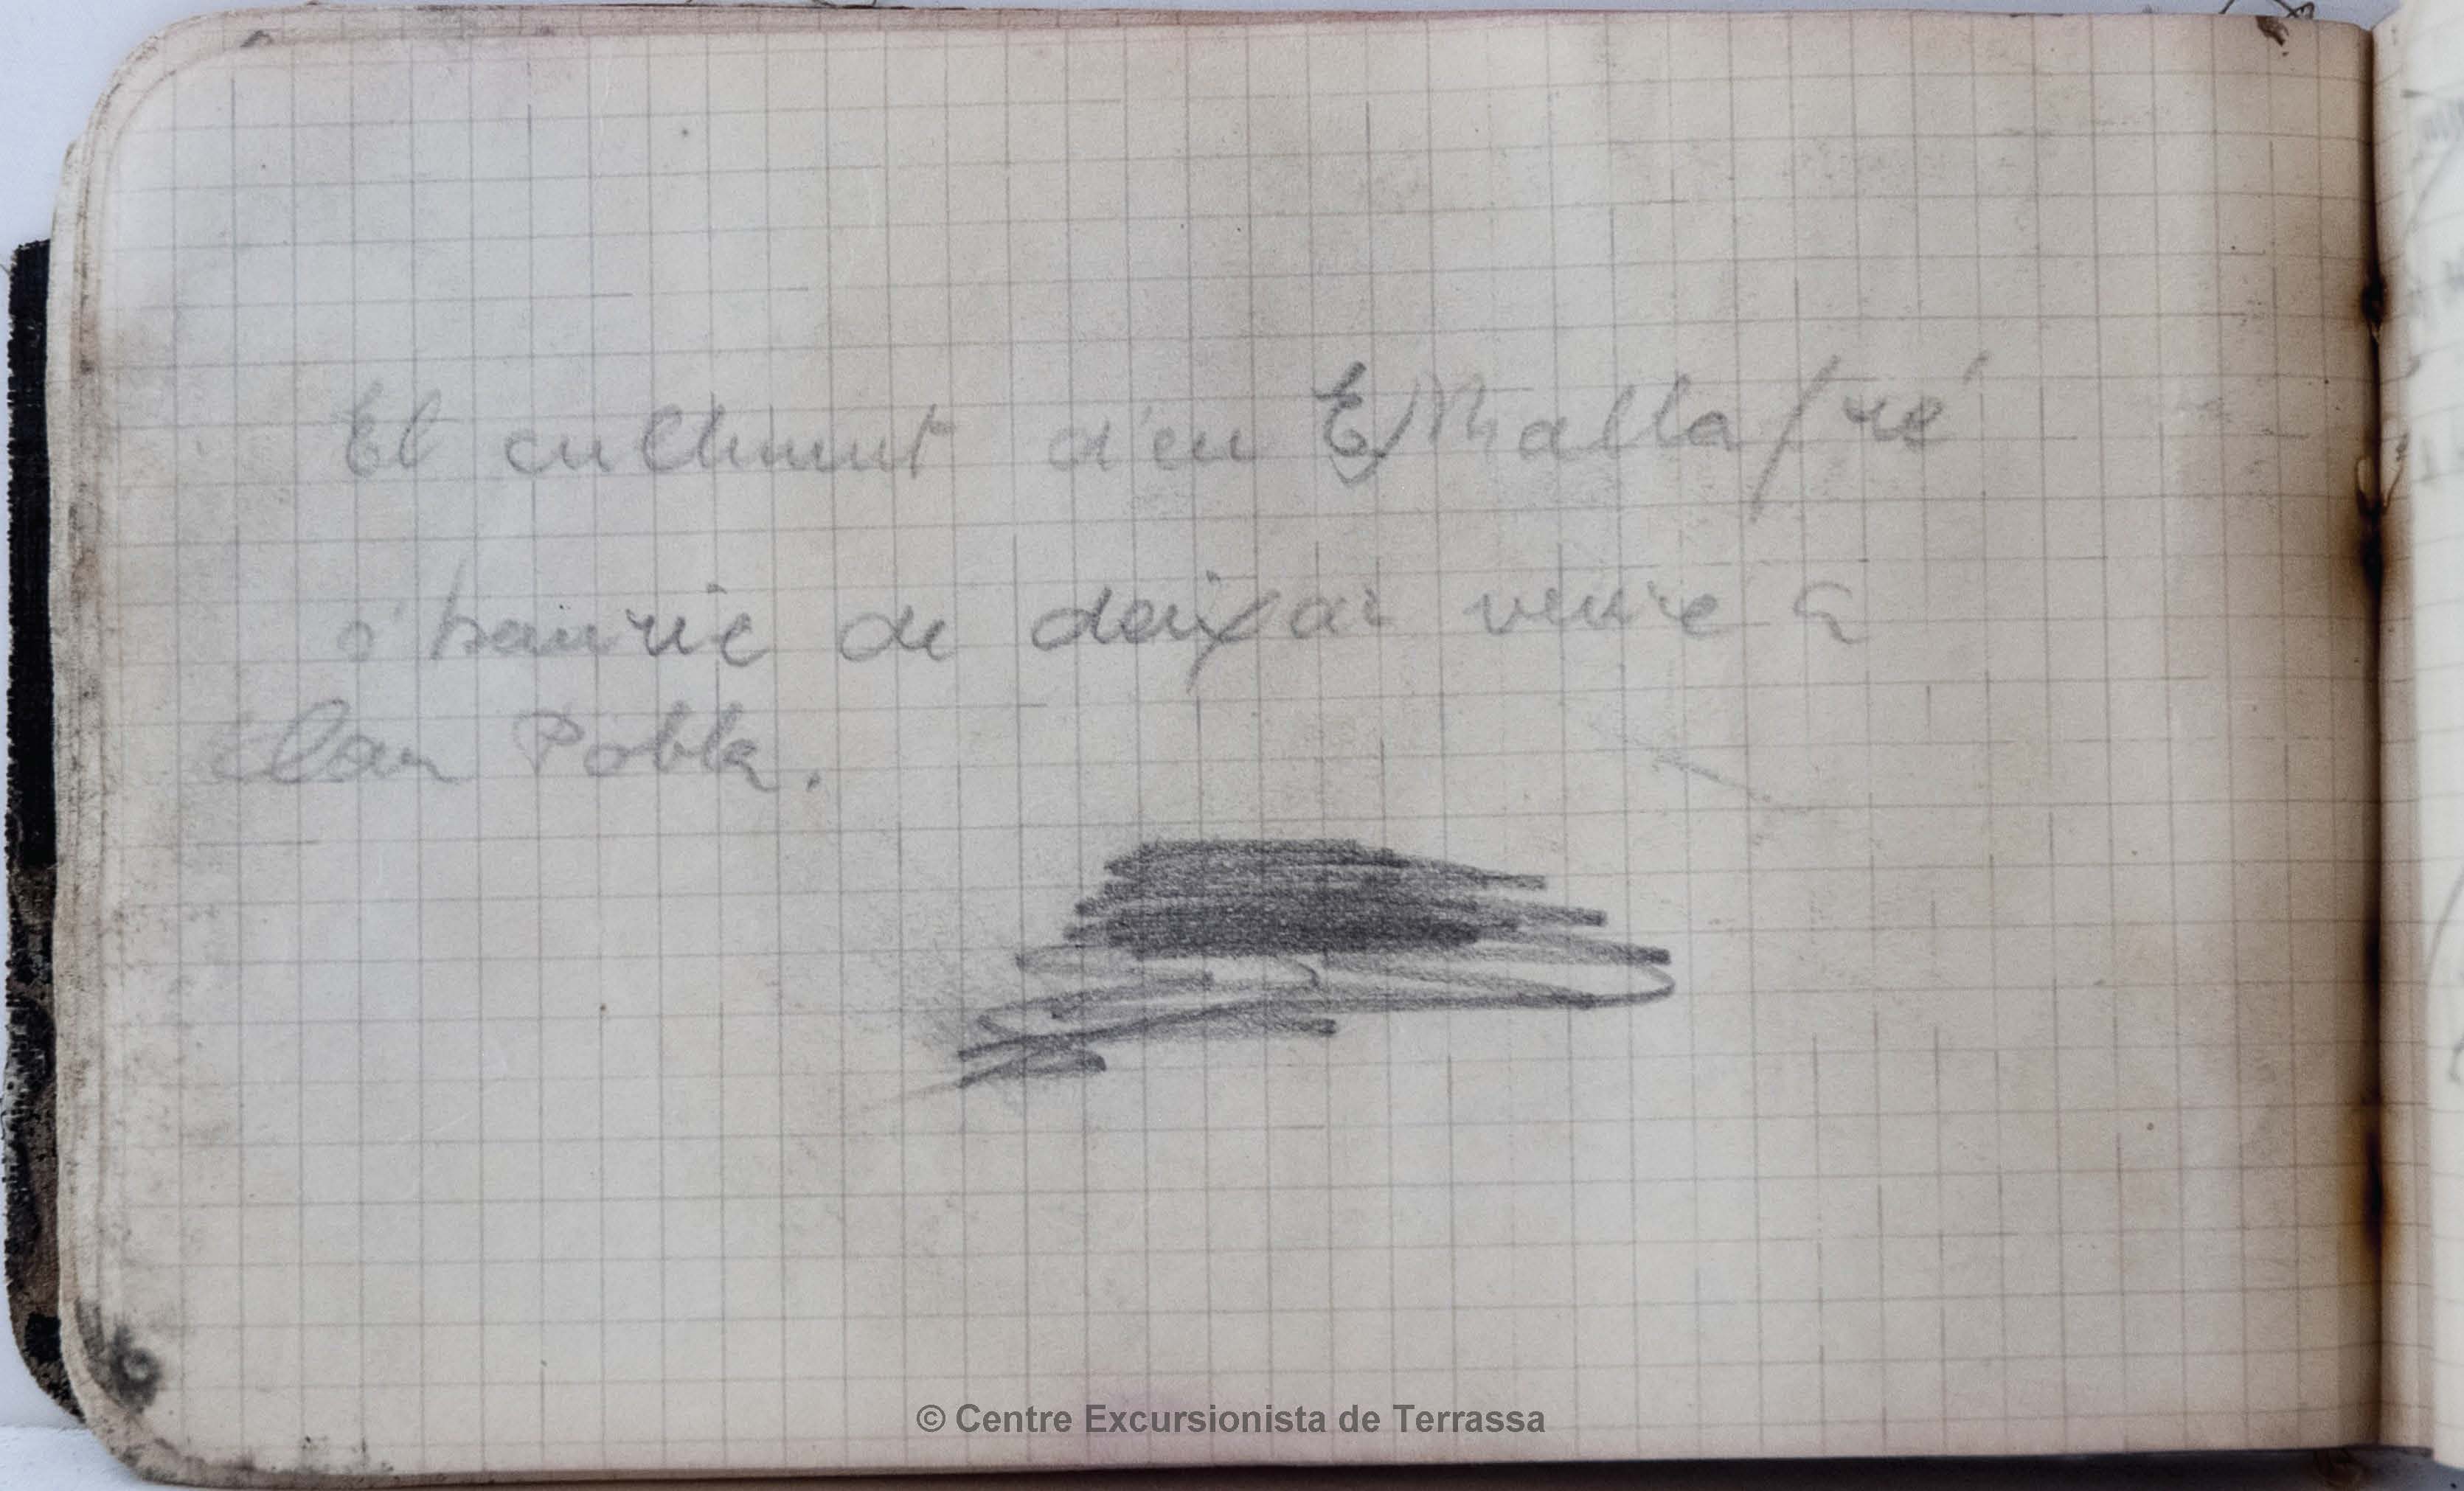 El enllumnt d'en E. Mallafré
s'hauríe de deixar veure a
Clar Pobla.
© Centre Excursionista de Terrassa